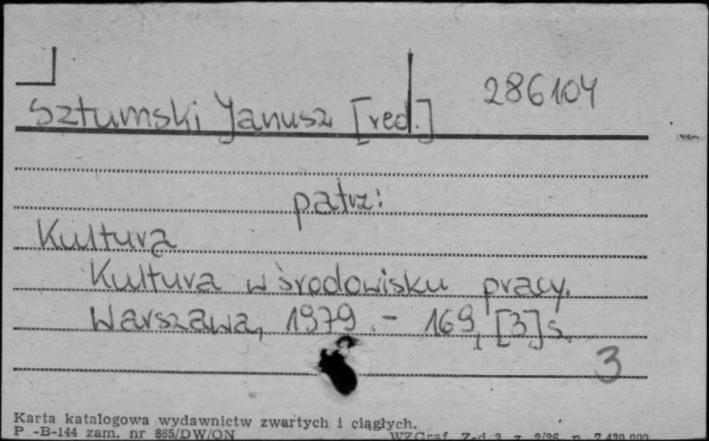 286104
Sztumski Janusz [red.]
patrz:
Kultura
Kultura w środowisku pracy.
Warszawa, 1979. - 169, [3] s.
3
Karta katalogowa wydawnictw zwartych i ciągłych.
P -B-144 zam. nr 865/DW/ON WZGraf. Z-d 2